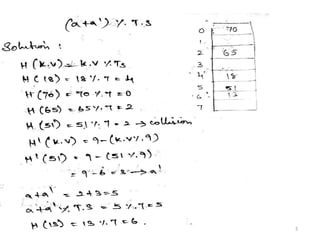 (a+a') % T.S
Solution :
H (k.v) = k.v % Ts
H (18) = 18 % 7 = 4
H (70) = 70 % 7 = 0
H (65) = 65 % 7 = 2
H (51) = 51 % 7 = 2 → collision
H' (k.v) = 9-(k.v % 9)
H' (51) = 9 - (51 % 9)
= 9 - 6 = 3 → a'
a+a' = 2+3=5
a+a' % T.S = 5 % 7 = 5
H (13) = 13 % 7 = 6.
0 70
1
2 65
3
4 18
5 51
6 13
7
3